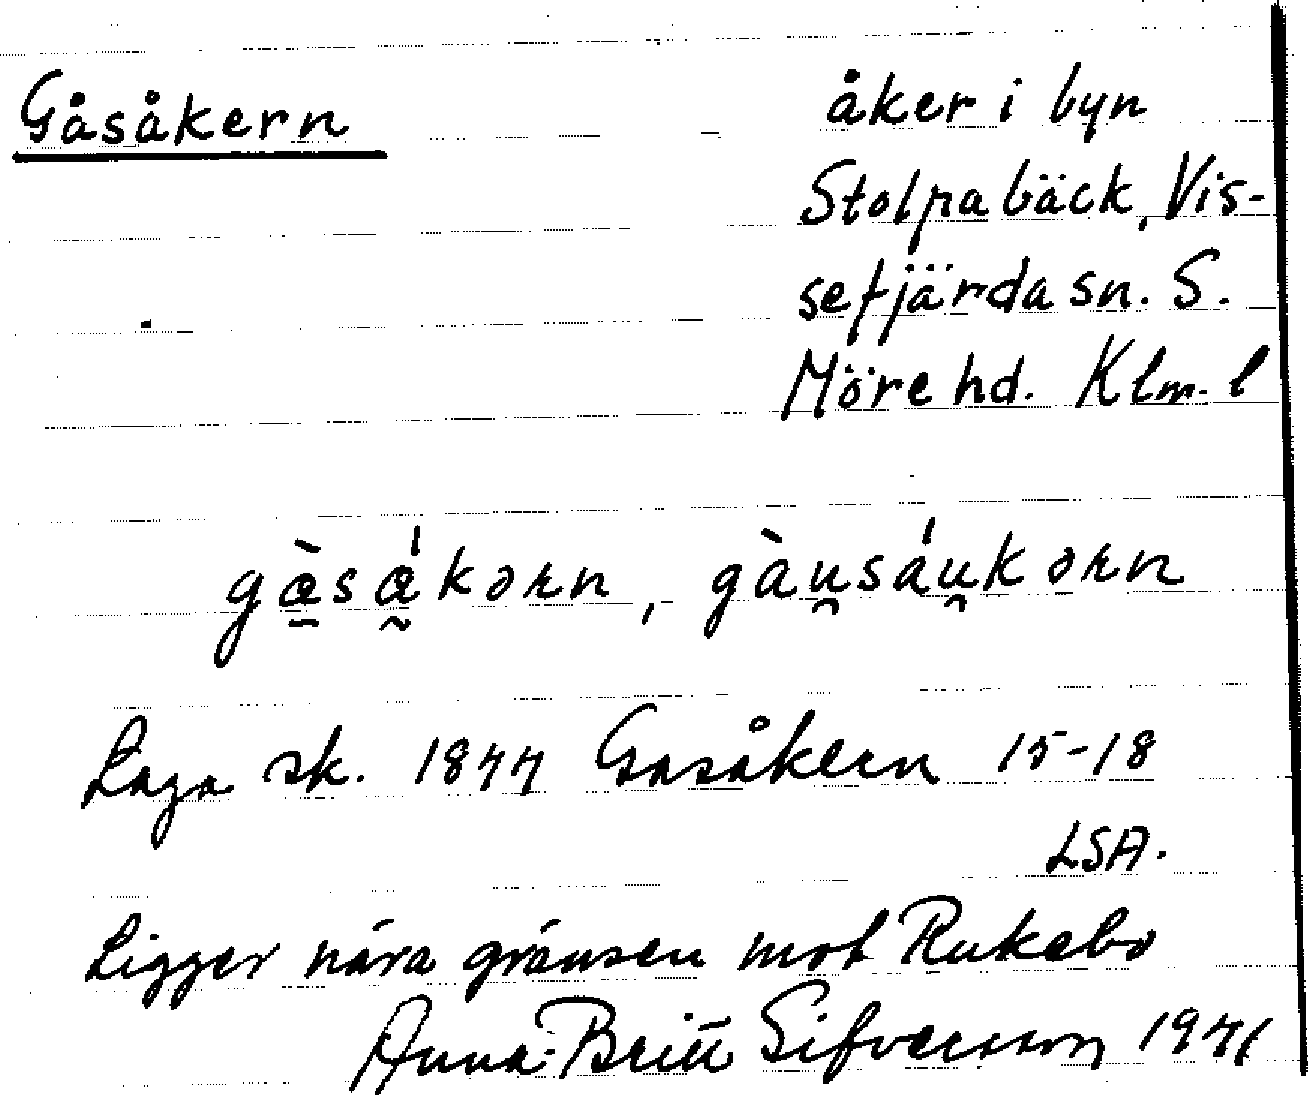 Gåsåkern
åker i byn
Stolpabäck, Vis-
sefjärda sn. S.
Möre hd. Klm. l
gæ̀såkərn, gàu̯sáu̯kərn
Laga sk. 1844 Gasåkern 15-18
LSA.
Ligger nära gränsen mot Rukebo
Anna-Britt Sifversson 1941